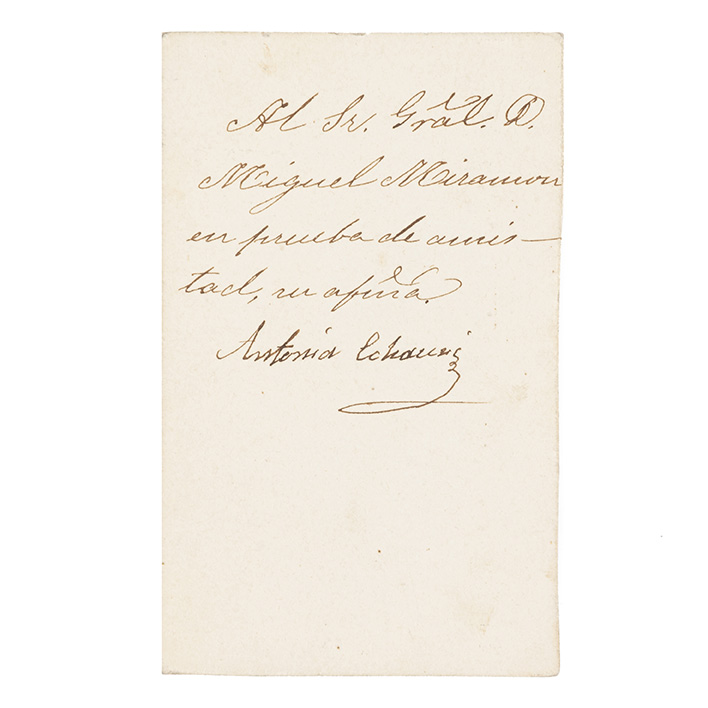 Al Sr. Grãl. D.
Miguel Miramon
en prueba de amis-
tad, su afm̃a.
Antonia